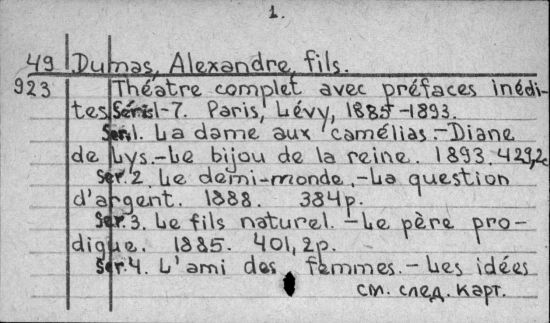 1.
49 Dumas, Alexandre, fils.
923 Théatre complet avec préfaces inédi-
tes Série1-7. Paris, Lévy, 1885-1893.
Ser.1. La dame aux camélias.-Diane
de Lys.-Le bijou de la reine. 1893. 429,2c
Ser.2. Le demi-monde.-La question
d'argent. 1888. 384p.
Ser.3. Le fils naturel.-Le père pro-
digue. 1885. 401,2p.
Ser.4. L'ami des femmes.-Les idées
см. след. карт.